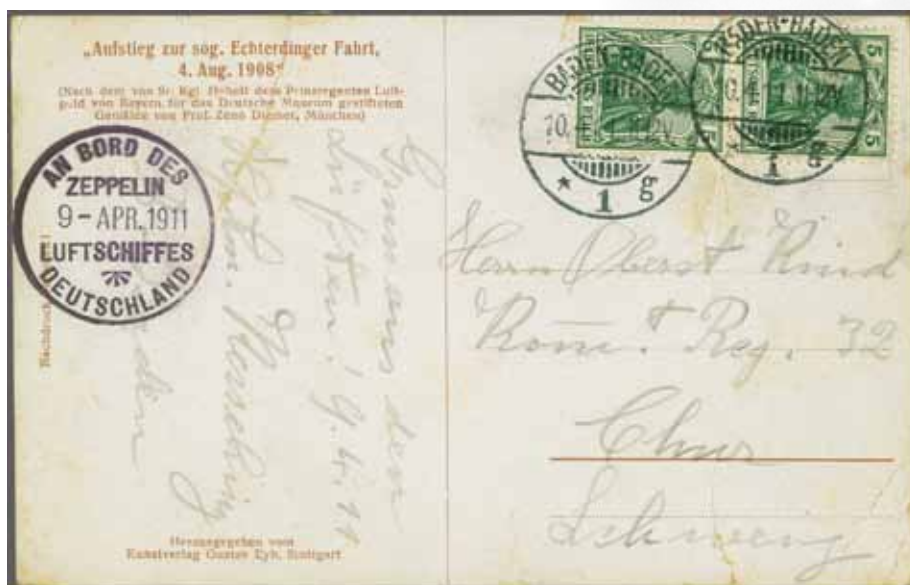 „Aufstieg zur sog. Echterdinger Fahrt,
4. Aug. 1908“
(Nach dem von Sr. Kgl. Hoheit dem Prinzregenten Luit-
pold von Bayern für das Deutsche Museum gestifteten
Gemälde von Prof. Zeno Diemer, München)
AN BORD DES
ZEPPELIN
9 - APR. 1911
LUFTSCHIFFES
DEUTSCHLAND
Gruss aus den
Lüften! 9.4.11
Herausgegeben vom
Kunstverlag Gustav Eyb, Stuttgart
BADEN-BADEN
* 1 g
BADEN-BADEN
* 1 g
5
5 5
Herrn Oberst
Kom. Reg. 32
Chur
Schweiz